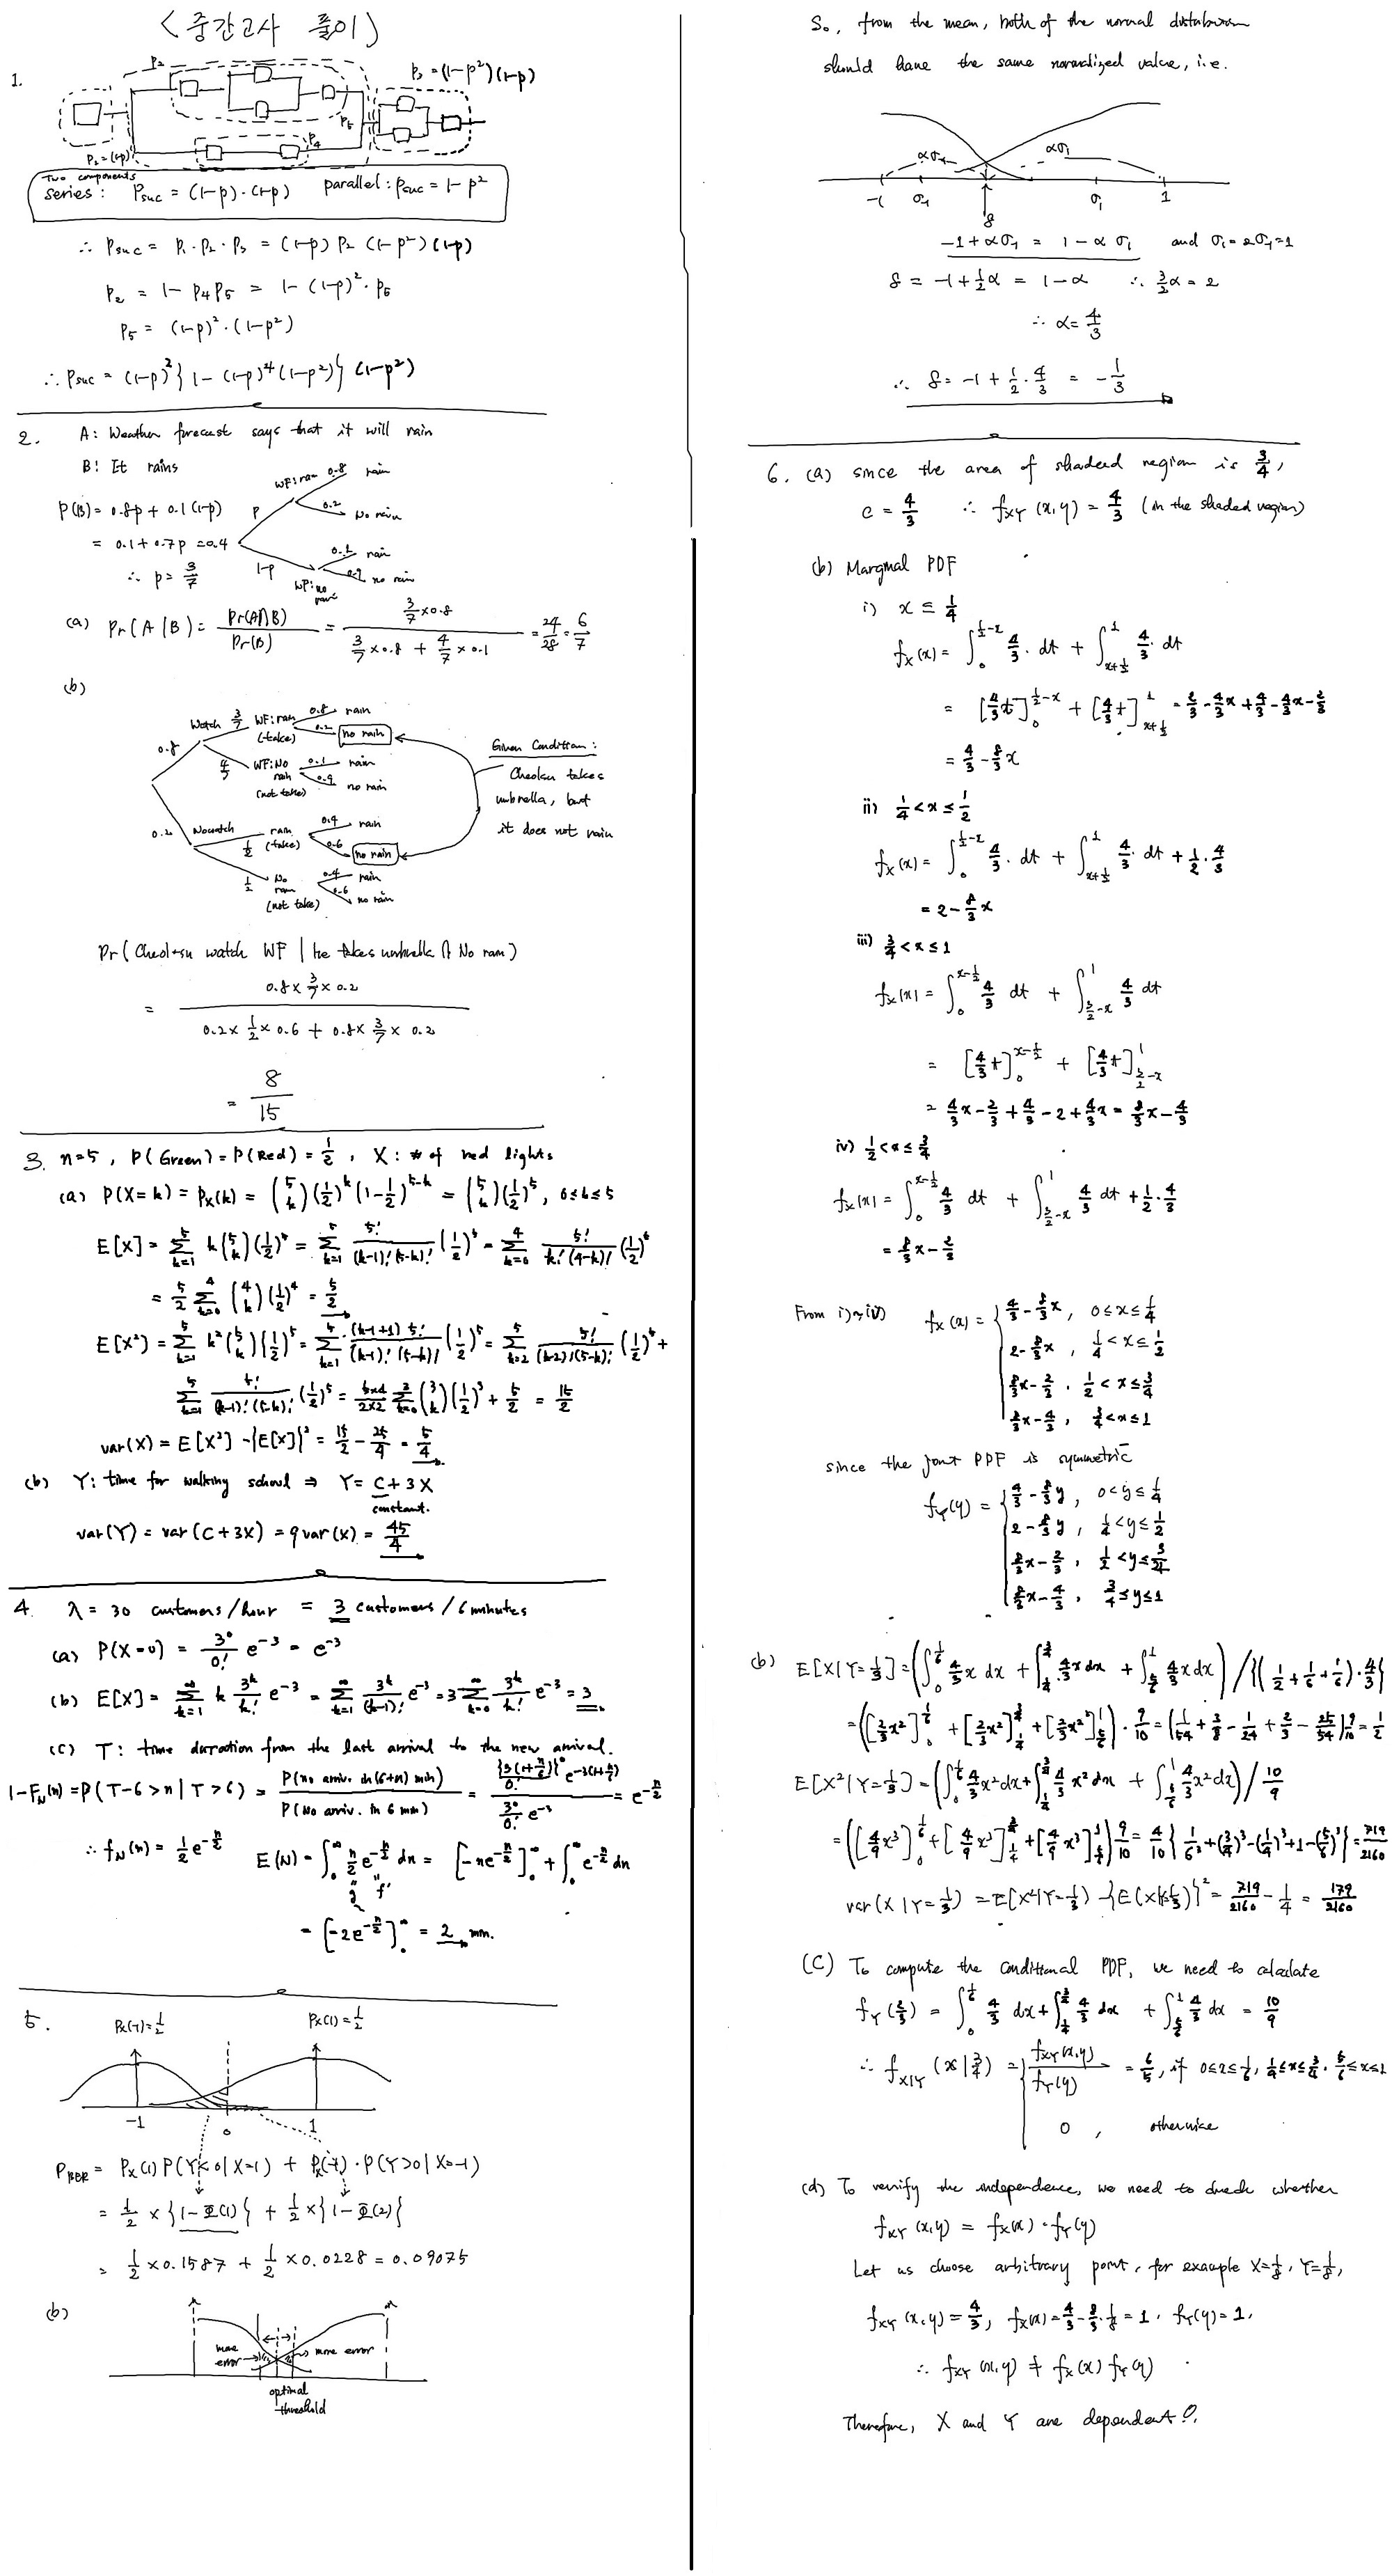 <중간고사 풀이>
1.
P₂
P₃ = (1-p²)(1-p)
P₅
P₄
P₁=(1-p)
Two components
series : Psuc = (1-p)·(1-p) parallel : psuc = 1-p²
∴ Psuc = P₁·P₂·P₃ = (1-p) P₂ (1-p²)(1-p)
P₂ = 1-P₄P₅ = 1-(1-p)²·P₅
P₅ = (1-p)²·(1-p²)
∴ Psuc = (1-p)²{1-(1-p)⁴(1-p²)}(1-p²)
2. A: Weather forecast says that it will rain
B: It rains
WF:rain 0.8 rain
P(B) = 0.8p + 0.1(1-p) p 0.2 No rain
= 0.1+0.7p = 0.4 0.1 rain
∴ p = 3/7 1-p WF:no rain 0.9 no rain
(a) Pr(A|B) = Pr(A∩B)/Pr(B) = (3/7×0.8)/(3/7×0.8 + 4/7×0.1) = 24/28 = 6/7
(b)
Watch 3/7 WF:rain (take) 0.8 rain
0.8 0.2 no rain
4/7 WF:No rain (not take) 0.1 rain
0.9 no rain
Given Condition :
Cheolsu takes
umbrella, but
it does not rain
0.2 No watch 1/2 rain (take) 0.4 rain
0.6 no rain
1/2 No rain (not take) 0.4 rain
0.6 no rain
Pr(Cheolsu watch WF | he takes umbrella ∩ No rain)
= (0.8×3/7×0.2)/(0.2×1/2×0.6 + 0.8×3/7×0.2)
= 8/15
3. n=5, P(Green)=P(Red)=1/2, X: # of red lights
(a) P(X=k) = Px(k) = (5 k)(1/2)^k(1-1/2)^(5-k) = (5 k)(1/2)^5, 0≤k≤5
E[X] = Σ_{k=1}^5 k(5 k)(1/2)^5 = Σ_{k=1}^5 5!/((k-1)!(5-k)!) (1/2)^5 = Σ_{k=0}^4 5!/(k!(4-k)!) (1/2)^5
= 5/2 Σ_{k=0}^4 (4 k)(1/2)^4 = 5/2
E[X²] = Σ_{k=1}^5 k²(5 k)(1/2)^5 = Σ_{k=1}^5 (k-1+1)5!/((k-1)!(5-k)!) (1/2)^5 = Σ_{k=2}^5 5!/((k-2)!(5-k)!) (1/2)^5 +
Σ_{k=1}^5 5!/((k-1)!(5-k)!) (1/2)^5 = 5×4/2×2 Σ_{k=0}^3 (3 k)(1/2)^3 + 5/2 = 15/2
var(X) = E[X²] - {E[X]}² = 15/2 - 25/4 = 5/4
(b) Y: time for walking school ⇒ Y = C + 3X
constant.
var(Y) = var(C+3X) = 9 var(X) = 45/4
4. λ = 30 customers/hour = 3 customers/6 minutes
(a) P(X=0) = 3⁰/0! e⁻³ = e⁻³
(b) E[X] = Σ_{k=1}^∞ k 3^k/k! e⁻³ = Σ_{k=1}^∞ 3^k/(k-1)! e⁻³ = 3Σ_{k=0}^∞ 3^k/k! e⁻³ = 3
(c) T: time duration from the last arrival to the new arrival.
1-F_N(n) = P(T-6>n | T>6) = P(no arriv. in (6+n) min)/P(No arriv. in 6 min) = ({3(1+n/6)}⁰/0! e^{-3(1+n/6)})/(3⁰/0! e⁻³) = e^{-n/2}
∴ f_N(n) = 1/2 e^{-n/2} E(N) = ∫₀^∞ n/2 e^{-n/2} dn = [-ne^{-n/2}]₀^∞ + ∫₀^∞ e^{-n/2} dn
g f'
= [-2e^{-n/2}]₀^∞ = 2 min.
5. Px(-1)=1/2 Px(1)=1/2
-1 0 1
P_BER = Px(1)P(Y<0|X=1) + Px(-1)·P(Y>0|X=-1)
= 1/2 × {1-Φ(1)} + 1/2 × {1-Φ(2)}
= 1/2 × 0.1587 + 1/2 × 0.0228 = 0.09075
(b)
more error
more error
optimal
threshold
So, from the mean, both of the normal distribution
should have the same normalized value, i.e.
ασ₋₁ ασ₁
-1 σ₋₁ δ σ₁ 1
-1+ασ₋₁ = 1-ασ₁ and σ₁=2σ₋₁=1
δ = -1+1/2α = 1-α ∴ 3/2α = 2
∴ α = 4/3
∴ δ = -1 + 1/2·4/3 = -1/3
6. (a) since the area of shaded region is 3/4,
c = 4/3 ∴ f_XY(x,y) = 4/3 (in the shaded region)
(b) Marginal PDF
i) x ≤ 1/4
f_X(x) = ∫₀^{1/2-x} 4/3·dt + ∫_{x+1/2}^1 4/3·dt
= [4/3t]₀^{1/2-x} + [4/3t]_{x+1/2}^1 = 2/3-4/3x+4/3-4/3x-2/3
= 4/3-8/3x
ii) 1/4<x≤1/2
f_X(x) = ∫₀^{1/2-x} 4/3·dt + ∫_{x+1/2}^1 4/3·dt + 1/2·4/3
= 2-8/3x
iii) 3/4<x≤1
f_X(x) = ∫₀^{x-1/2} 4/3 dt + ∫_{3/2-x}^1 4/3 dt
= [4/3t]₀^{x-1/2} + [4/3t]_{3/2-x}^1
= 4/3x-2/3+4/3-2+4/3x = 8/3x-4/3
iv) 1/2<x≤3/4
f_X(x) = ∫₀^{x-1/2} 4/3 dt + ∫_{3/2-x}^1 4/3 dt + 1/2·4/3
= 8/3x-2/3
From i)~iv) f_X(x) = { 4/3-8/3x, 0≤x≤1/4
2-8/3x, 1/4<x≤1/2
8/3x-2/3, 1/2<x≤3/4
8/3x-4/3, 3/4<x≤1
since the joint PDF is symmetric
f_Y(y) = { 4/3-8/3y, 0<y≤1/4
2-8/3y, 1/4<y≤1/2
8/3x-2/3, 1/2<y≤3/4
8/3x-4/3, 3/4≤y≤1
(b) E[X|Y=1/3] = (∫₀^{1/6} 4/3x dx + ∫_{1/4}^{3/4} 4/3x dx + ∫_{5/6}^1 4/3x dx) / {(1/2+1/6+1/6)·4/3}
= ([2/3x²]₀^{1/6} + [2/3x²]_{1/4}^{3/4} + [2/3x²]_{5/6}^1)·9/10 = (1/54+3/8-1/24+2/3-25/54)9/10 = 1/2
E[X²|Y=1/3] = (∫₀^{1/6} 4/3x²dx + ∫_{1/4}^{3/4} 4/3 x²dx + ∫_{5/6}^1 4/3x²dx) / 10/9
= ([4/9x³]₀^{1/6} + [4/9x³]_{1/4}^{3/4} + [4/9x³]_{5/6}^1)9/10 = 4/10{1/6³+(3/4)³-(1/4)³+1-(5/6)³} = 719/2160
var(X|Y=1/3) = E[X²|Y=1/3] - {E(X|Y=1/3)}² = 719/2160 - 1/4 = 179/2160
(C) To compute the conditional PDF, we need to calculate
f_Y(2/3) = ∫₀^{1/6} 4/3 dx + ∫_{1/4}^{3/4} 4/3 dx + ∫_{5/6}^1 4/3 dx = 10/9
∴ f_X|Y(x|2/4) = { f_XY(x,y)/f_Y(y) = 6/5, if 0≤x≤1/6, 1/4≤x≤3/4, 5/6≤x≤1
0, otherwise
(d) To verify the independence, we need to check whether
f_XY(x,y) = f_X(x)·f_Y(y)
Let us choose arbitrary point, for example X=1/8, Y=1/8,
f_XY(x,y) = 4/3, f_X(x) = 4/3-8/3·1/8 = 1, f_Y(y) = 1.
∴ f_XY(x,y) ≠ f_X(x) f_Y(y)
Therefore, X and Y are dependent!.